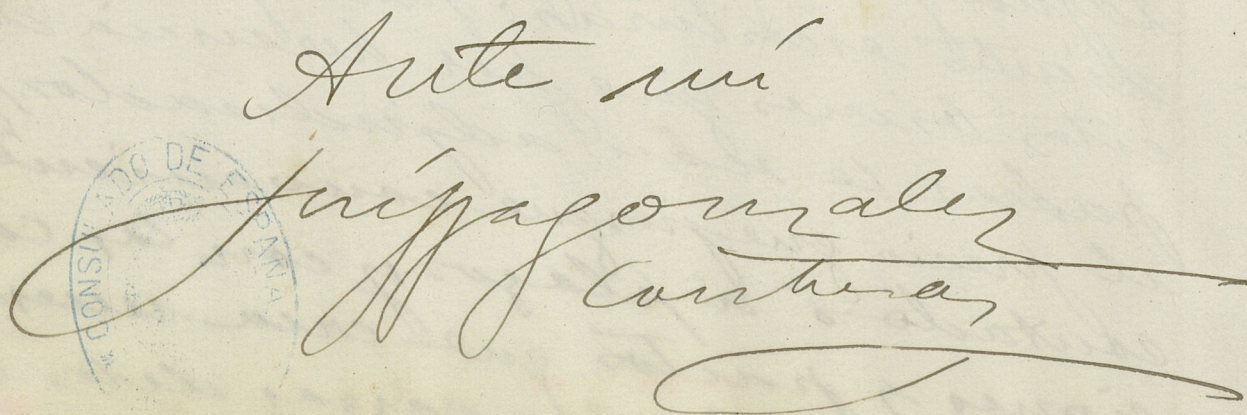 Ante mí
gonzalez
Contreras
* CONSULADO DE ESPAÑA